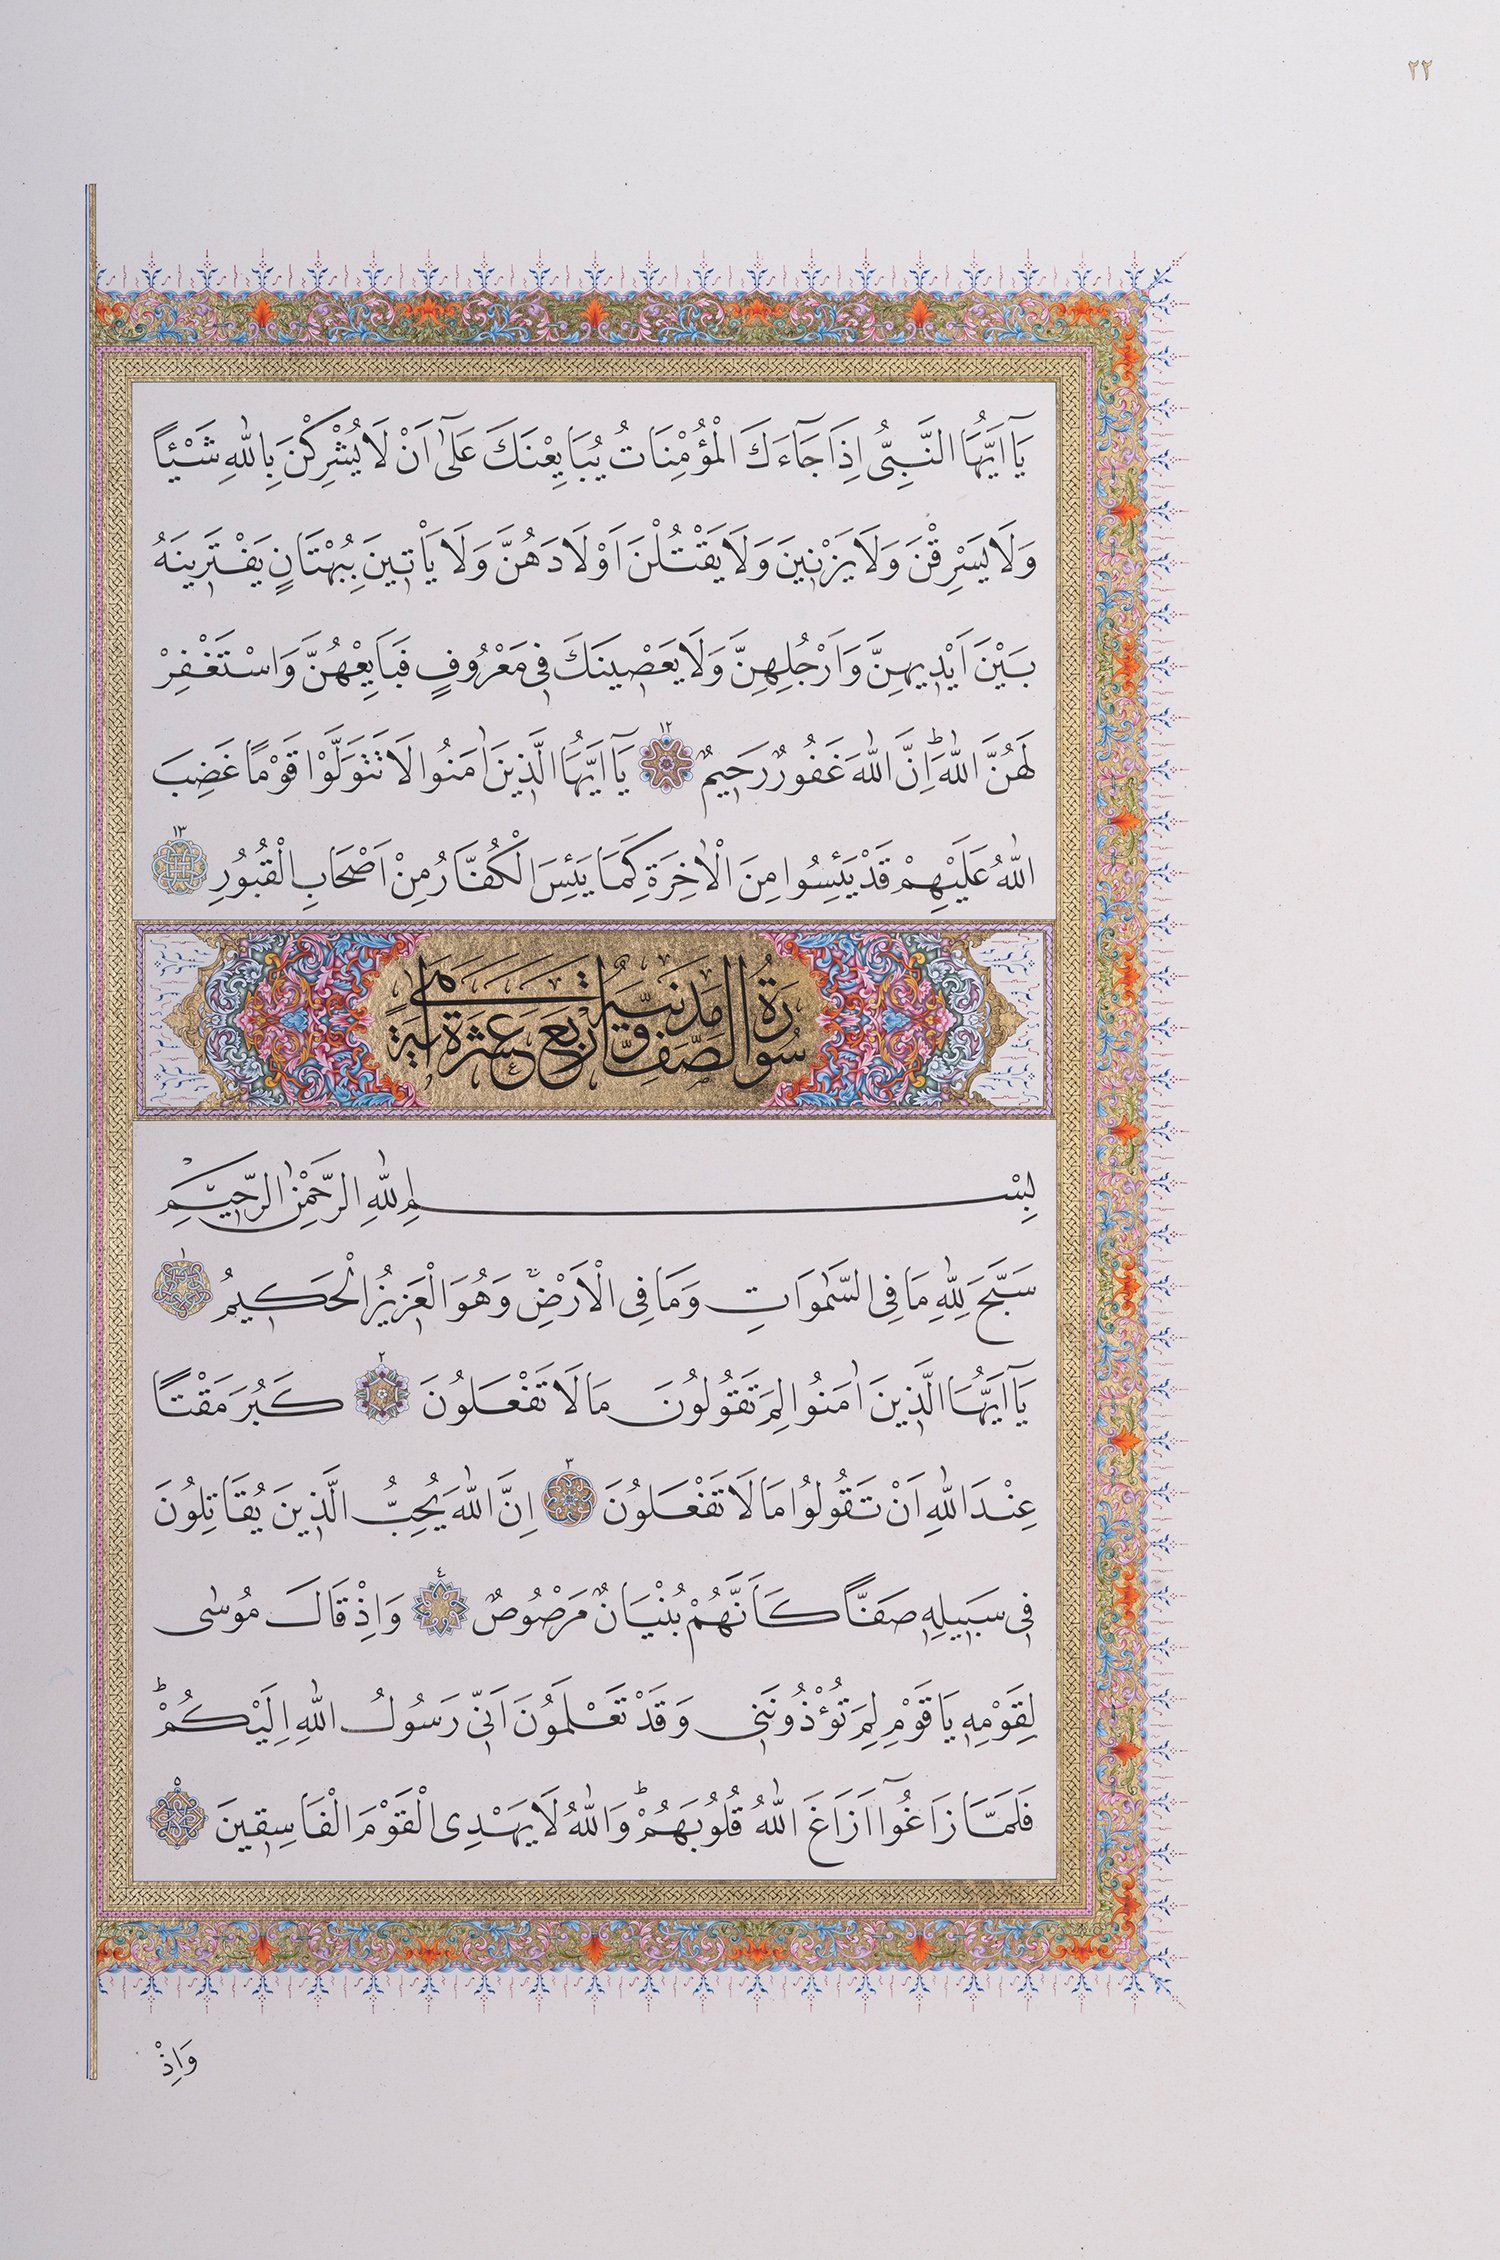 ٢٢
يَٓا اَيُّهَا النَّبِىُّ اِذَا جَٓاءَكَ الْمُؤْمِنَاتُ يُبَايِعْنَكَ عَلٰٓى اَنْ لَا يُشْرِكْنَ بِاللّٰهِ شَيْئًا
وَلَا يَسْرِقْنَ وَلَا يَزْن۪ينَ وَلَا يَقْتُلْنَ اَوْلَادَهُنَّ وَلَا يَاْت۪ينَ بِبُهْتَانٍ يَفْتَر۪ينَهُ
بَيْنَ اَيْد۪يهِنَّ وَاَرْجُلِهِنَّ وَلَا يَعْص۪ينَكَ ف۪ى مَعْرُوفٍ فَبَايِعْهُنَّ وَاسْتَغْفِرْ
لَهُنَّ اللّٰهَۜ اِنَّ اللّٰهَ غَفُورٌ رَح۪يمٌ ١٢ يَٓا اَيُّهَا الَّذ۪ينَ اٰمَنُوا لَا تَتَوَلَّوْا قَوْمًا غَضِبَ
اللّٰهُ عَلَيْهِمْ قَدْ يَئِسُوا مِنَ الْاٰخِرَةِ كَمَا يَئِسَ الْكُفَّارُ مِنْ اَصْحَابِ الْقُبُورِ ١٣
سُورَةُ الصَّفِّ مَدَنِيَّةٌ وَهِىَ اَرْبَعَ عَشْرَةَ اٰيَةً
بِسْمِ اللّٰهِ الرَّحْمٰنِ الرَّح۪يمِ
سَبَّحَ لِلّٰهِ مَا فِى السَّمٰوَاتِ وَمَا فِى الْاَرْضِۚ وَهُوَ الْعَز۪يزُ الْحَك۪يمُ ١
يَٓا اَيُّهَا الَّذ۪ينَ اٰمَنُوا لِمَ تَقُولُونَ مَا لَا تَفْعَلُونَ ٢ كَبُرَ مَقْتًا
عِنْدَ اللّٰهِ اَنْ تَقُولُوا مَا لَا تَفْعَلُونَ ٣ اِنَّ اللّٰهَ يُحِبُّ الَّذ۪ينَ يُقَاتِلُونَ
ف۪ى سَب۪يلِه۪ صَفًّا كَاَنَّهُمْ بُنْيَانٌ مَرْصُوصٌ ٤ وَاِذْ قَالَ مُوسٰى
لِقَوْمِه۪ يَا قَوْمِ لِمَ تُؤْذُونَن۪ى وَقَدْ تَعْلَمُونَ اَنّ۪ى رَسُولُ اللّٰهِ اِلَيْكُمْۜ
فَلَمَّا زَاغُٓوا اَزَاغَ اللّٰهُ قُلُوبَهُمْۜ وَاللّٰهُ لَا يَهْدِى الْقَوْمَ الْفَاسِق۪ينَ ٥
وَاِذْ